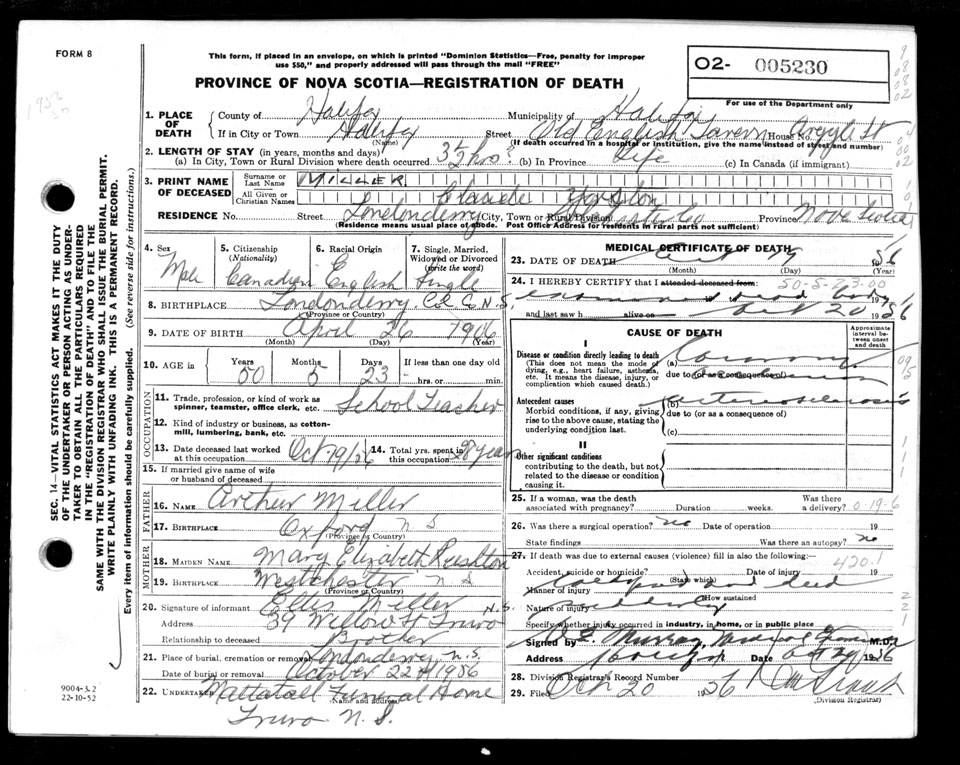 FORM 8
This form, if placed in an envelope, on which is printed "Dominion Statistics—Free, penalty for improper
use $50," and properly addressed will pass through the mail "FREE"
PROVINCE OF NOVA SCOTIA—REGISTRATION OF DEATH
O2- 005230
For use of the Department only
1. PLACE OF DEATH County of Halifax Municipality of Halifax
If in City or Town Halifax (Name) Street Old English Tavern House No. Argyle St
(If death occurred in a hospital or institution, give the name instead of street and number)
2. LENGTH OF STAY (in years, months and days)
(a) In City, Town or Rural Division where death occurred (b) In Province Life (c) In Canada (if immigrant)
3. PRINT NAME OF DECEASED Surname or Last Name MILLER
All Given or Christian Names Claude
RESIDENCE No. Street Londonderry City, Town or Rural Division Province Nova Scotia
(Residence means usual place of abode. Post Office Address for residents in rural parts not sufficient)
4. Sex Male
5. Citizenship (Nationality) Canadian
6. Racial Origin English
7. Single, Married, Widowed or Divorced (write the word) Single
8. BIRTHPLACE Londonderry Col. Co. N.S.
(Province or Country)
9. DATE OF BIRTH April 26 1906
(Month) (Day) (Year)
10. AGE in Years 50 Months 5 Days 23 If less than one day old hrs. or min.
OCCUPATION
11. Trade, profession, or kind of work as spinner, teamster, office clerk, etc. School Teacher
12. Kind of industry or business, as cotton-mill, lumbering, bank, etc.
13. Date deceased last worked at this occupation Oct 19/56 14. Total yrs. spent in this occupation 28 years
15. If married give name of wife or husband of deceased
FATHER
16. NAME Arthur Miller
17. BIRTHPLACE Oxford N S
(Province or Country)
MOTHER
18. MAIDEN NAME Mary Elizabeth Rushton
19. BIRTHPLACE Westchester N S
(Province or Country)
20. Signature of informant Ellis Miller
Address 39 Willow St Truro N.S.
Relationship to deceased Brother
21. Place of burial, cremation or removal Londonderry N.S.
Date of burial or removal October 22nd 1956
22. UNDERTAKER Mattatall Funeral Home
(Name and address)
Truro N. S.
MEDICAL CERTIFICATE OF DEATH
23. DATE OF DEATH Oct 19 1956
(Month) (Day) (Year)
24. I HEREBY CERTIFY that I attended deceased from: 50-5-23-00
examined dead body
and last saw h alive on Oct 20 1956
CAUSE OF DEATH
Approximate interval between onset and death
I
Disease or condition directly leading to death
(This does not mean the mode of dying, e.g., heart failure, asthenia, etc. It means the disease, injury, or complication which caused death.)
(a) Coronary
due to (or as a consequence of)
Antecedent causes
Morbid conditions, if any, giving rise to the above cause, stating the underlying condition last.
(b) arteriosclerosis
due to (or as a consequence of)
(c)
II
Other significant conditions
contributing to the death, but not related to the disease or condition causing it.
25. If a woman, was the death associated with pregnancy? Duration weeks. Was there a delivery? 0-19-6
26. Was there a surgical operation? no Date of operation 19
State findings Was there an autopsy? no
27. If death was due to external causes (violence) fill in also the following:
420.1
Accident, suicide or homicide? (State which) Date of injury 19
Manner of injury Collapsed and died
(How sustained)
Nature of injury suddenly
Specify whether injury occurred in industry, in home, or in public place
Signed by Murray, Medical Examiner M.D.
Address Halifax Date Oct 20 1956
28. Division Registrar's Record Number
29. Filed Oct 20 1956
(Division Registrar)
SEC. 14—VITAL STATISTICS ACT MAKES IT THE DUTY
OF THE UNDERTAKER OR PERSON ACTING AS UNDER-
TAKER TO OBTAIN ALL THE PARTICULARS REQUIRED
IN THE "REGISTRATION OF DEATH" AND TO FILE THE
SAME WITH THE DIVISION REGISTRAR WHO SHALL ISSUE THE BURIAL PERMIT.
WRITE PLAINLY WITH UNFADING INK. THIS IS A PERMANENT RECORD.
Every item of information should be carefully supplied. (See reverse side for instructions.)
9004-3.2
22-10-52